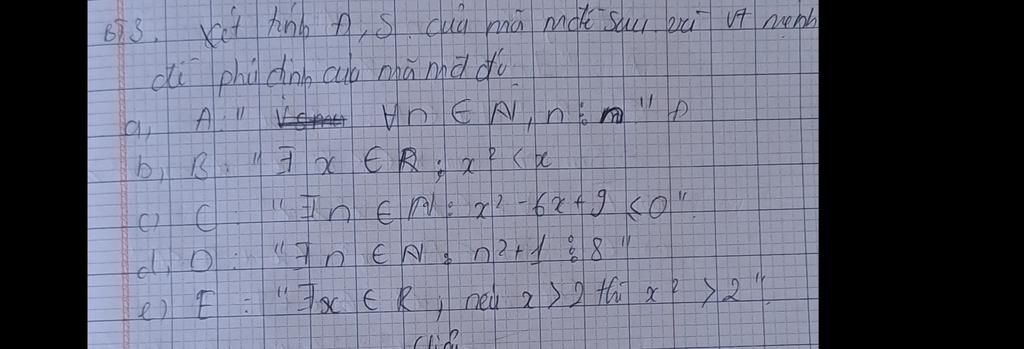 BT3. Xét tính Đ, S của mã mđk sau và vt mệnh
đề phủ định của mã mđ đó.
a, A: " ∀n ∈ N, n ⋮ n " Đ
b, B: " ∃ x ∈ R : x² < x
c) C: " ∃n ∈ N : x² - 6x + 9 < 0 ".
d, D: " ∃n ∈ N : n² + 1 ⋮ 8 "
e) E: " ∃x ∈ R, nếu x > 2 thì x² > 2 ".